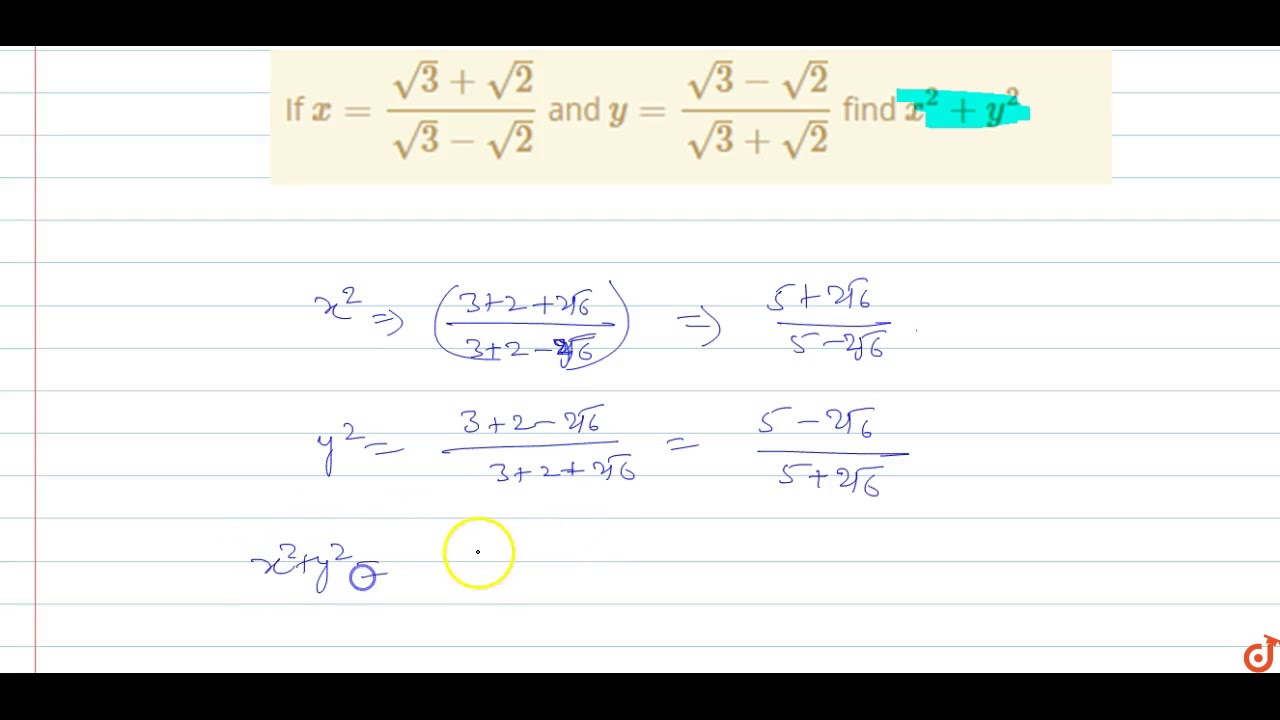 If x = (√3 + √2)/(√3 − √2) and y = (√3 − √2)/(√3 + √2) find x² + y²
x² ⇒ ((3+2+2√6)/(3+2−2√6)) ⇒ (5+2√6)/(5−2√6)
y² = (3+2−2√6)/(3+2+2√6) = (5−2√6)/(5+2√6)
x²+y² =